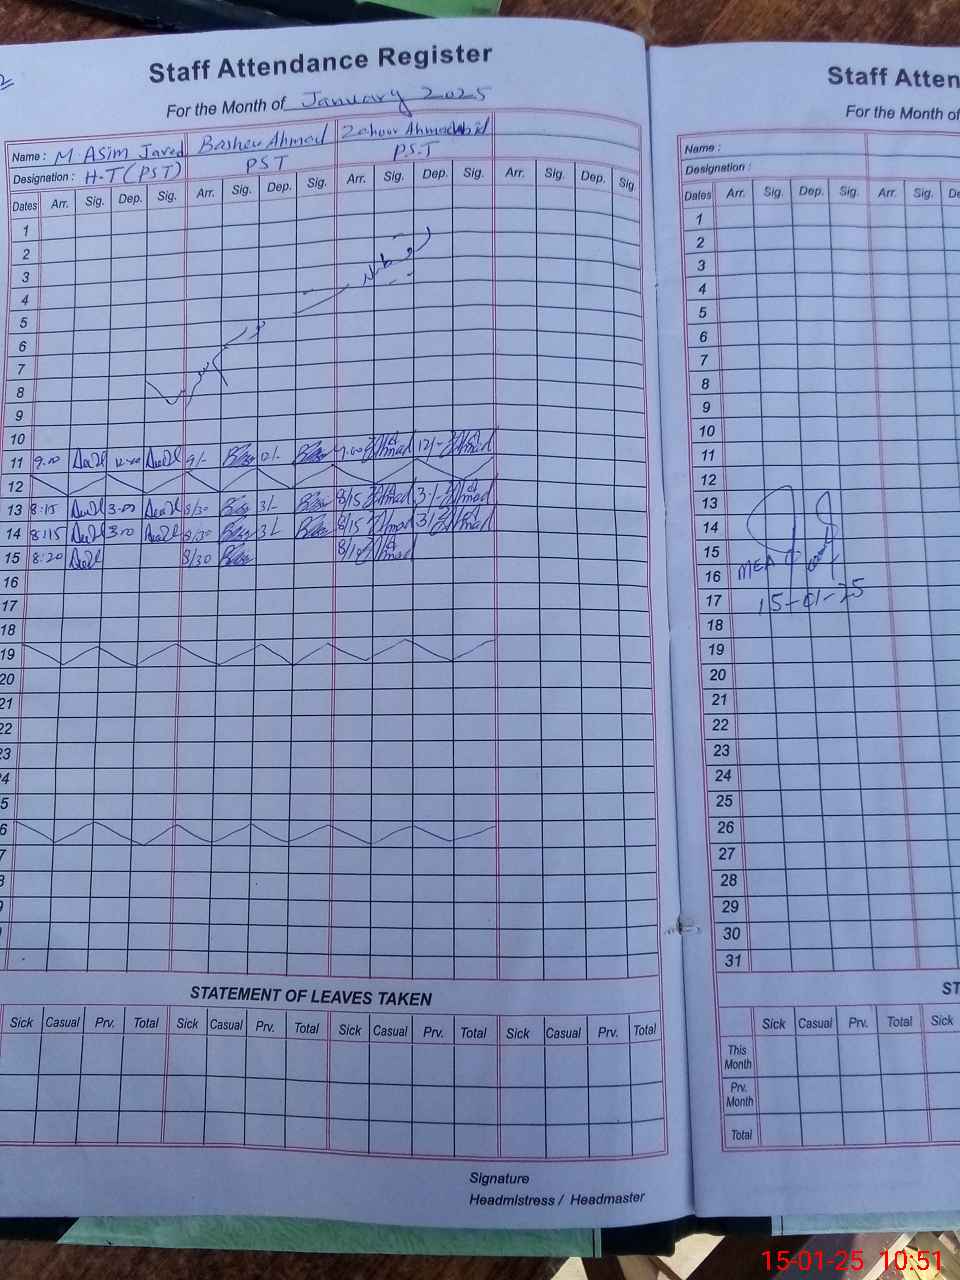 Staff Attendance Register
For the Month of January 2025
Name : M. Asim Javed Basheer Ahmad Zahoor Ahmad
Designation : H.T (PST) PST PST
Dates Arr. Sig. Dep. Sig. Arr. Sig. Dep. Sig. Arr. Sig. Dep. Sig. Arr. Sig. Dep. Sig.
1
2
3
4
5
6
7
8
9
10
11 9.00 12.00 9/- 12/-
12
13 8:15 3.00 8/30 3/- 8/15 3/-
14 8:15 3.00 8/30 3/- 8/15 3/-
15 8:20 8/30
16
17
18
19
20
21
22
23
4
5
6
7
8
9
STATEMENT OF LEAVES TAKEN
Sick Casual Prv. Total Sick Casual Prv. Total Sick Casual Prv. Total Sick Casual Prv. Total
Signature
Headmistress / Headmaster
Staff Atten
For the Month of
Name :
Designation :
Dates Arr. Sig. Dep. Sig. Arr. Sig. De
1
2
3
4
5
6
7
8
9
10
11
12
13
14
15
16 MEA
17 15-01-25
18
19
20
21
22
23
24
25
26
27
28
29
30
31
ST
Sick Casual Prv. Total Sick
This Month
Prv. Month
Total
15-01-25 10:51